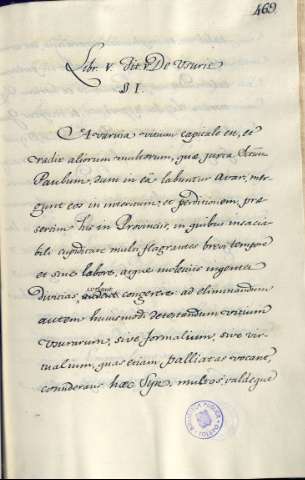 469
Libr. V Tit V De Vsuris
§ I.
Avaritia vitium capitale est, et
radix aliorum multorum, quæ juxta
Paulum, dum in ea labuntur Avari, mer-
gunt eos in interitum, et perditionem, præ-
sertim his in Provincis, in quibus insacia-
bili cupiditate multi flagrantes brevi tempore
et sine labore, atque molestis ingentes
divitias, volunt congerere: ad eliminandum
autem huiusmodi detestandum vitium
Vsurarum, sive formalium, sive vir-
tualium, quas etiam palliatas vocant,
considerans hæc Syn. multos, valdeque
BIBLIOTECA PUBLICA
TOLEDO